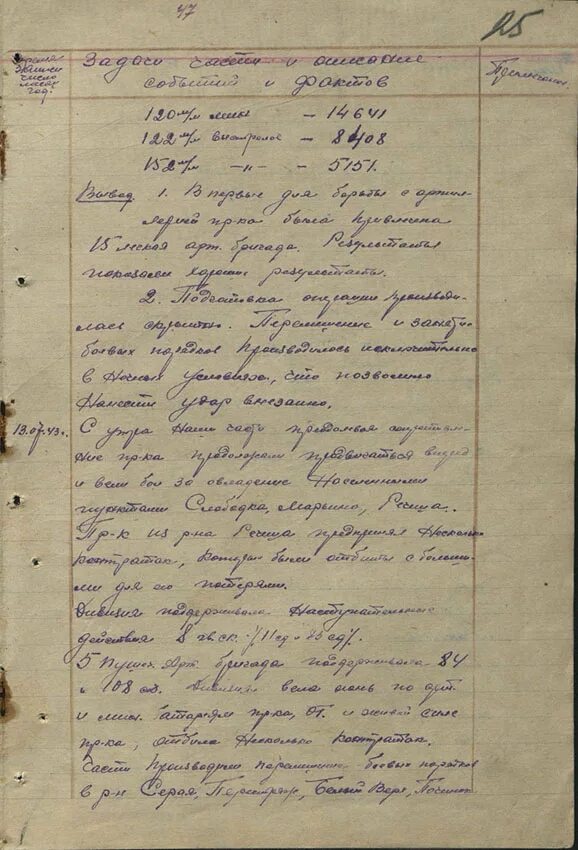 47
25
Время
записи
число
месяц
год.
Задачи части и описание
событий и фактов
Примечание
120 м/м мины – 14641
122 м/м выстрелов – 8408
152 м/м –"– – 5151.
Вывод 1. Впервые для борьбы с артил-
лерией пр-ка была привлечена
15 легкая арт. бригада. Результаты
показали хорошие результаты.
2. Подготовка операции производи-
лась скрытно. Перемещение и занятие
боевых порядков производилось исключительно
в ночных условиях, что позволило
нанести удар внезапно.
13.07.43г. С утра наши части преодолевая сопротивле-
ние пр-ка продолжали продвигаться вперед
и вели бои за овладение населенными
пунктами Слободка, Марьино, Ресша.
Пр-к из р-на Ресша предпринял несколько
контратак, которые были отбиты с больши-
ми для его потерями.
Дивизия поддерживала наступательные
действия 8 гв ск. /11 сд и 85 сд/.
5 пушеч. арт. бригада поддерживала 84
и 108 сд. Дивизия вела огонь по арт.
и мин. батареям пр-ка, ОТ. и живой силе
пр-ка, отбила несколько контратак.
Части производили перемещение боевых порядков
в р-н Серая, Перестряж, Белый Верх,